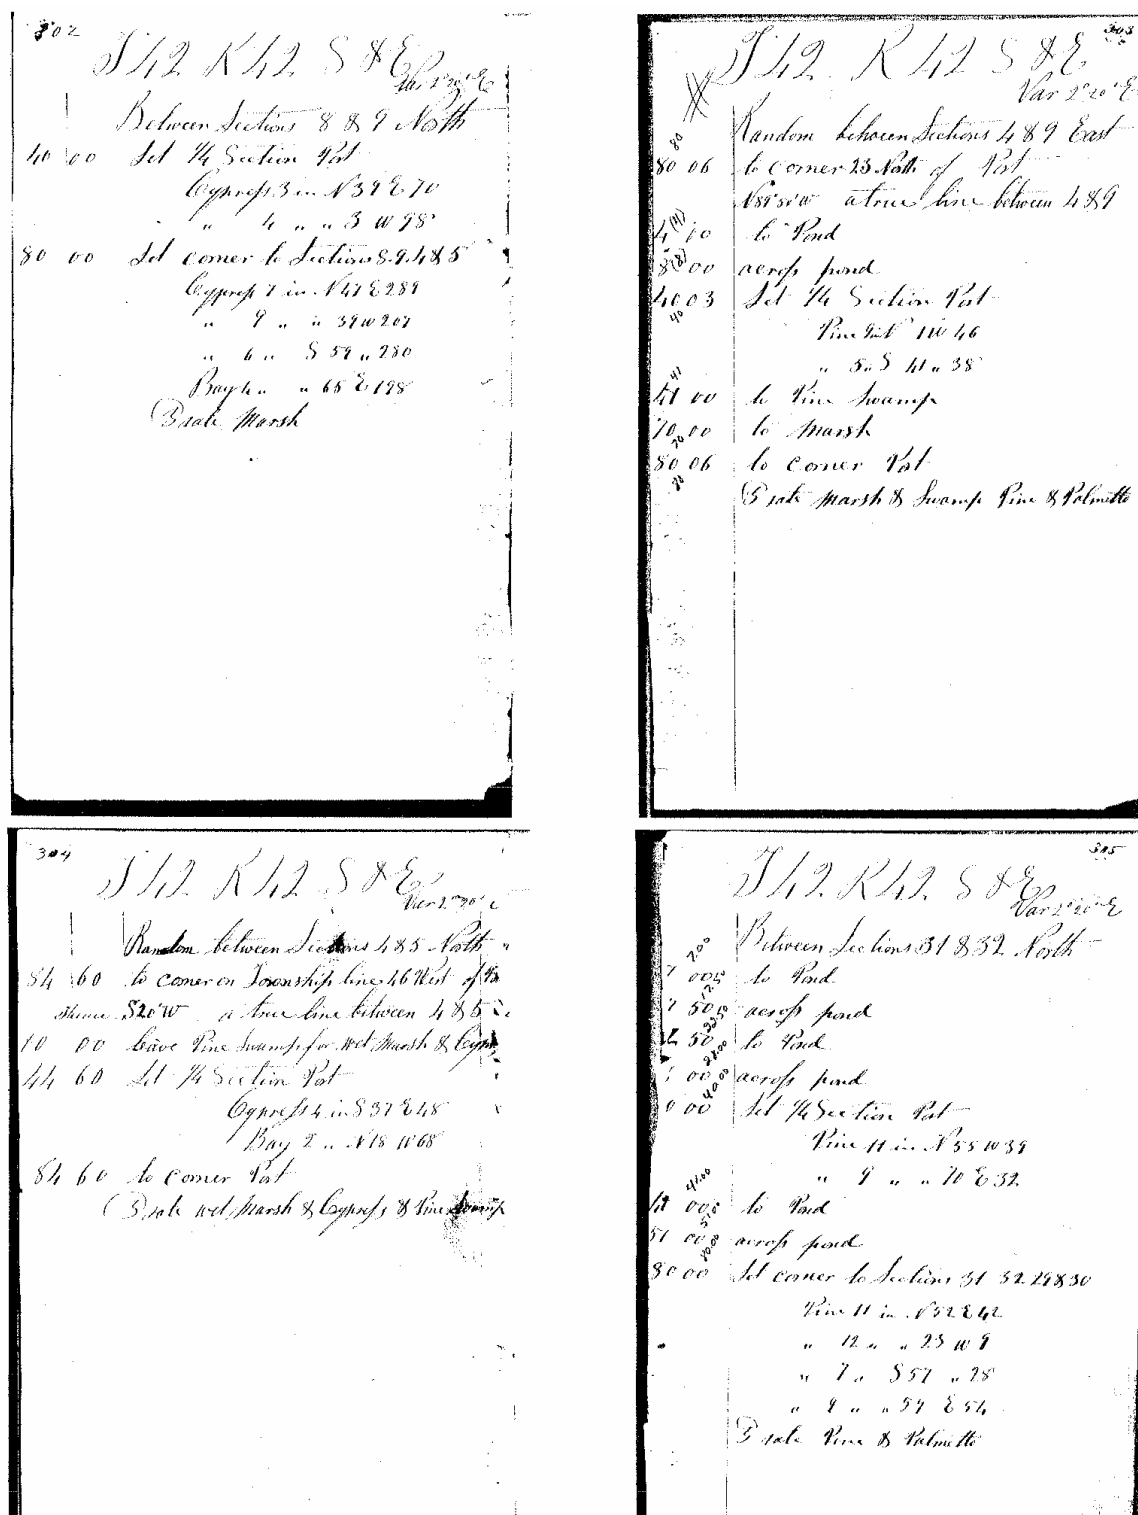 302
T 42 R 42 S & E
Var 2° 20' E
Between Sections 8 & 9 North
40 00 Set 1/4 Section Post
Cypress 3 in N 39 E 70
" 4 " " 3 W 98
80 00 Set corner to Sections 8. 9. 4 & 5
Cypress 7 in N 47 E 289
" 9 " " 39 W 207
" 6 " S 59 " 280
Bay 4 " " 65 E 198
3 rate Marsh
303
T 42 R 42 S & E
Var 2° 20' E
Random between Sections 4 & 9 East
80
80 06 to corner 23 North of Post
N 89° 50' W a true line between 4 & 9
4 10 to Pond
8 00 across pond
40 03 Set 1/4 Section Post
40
Pine 9 in N 11 W 46
" 5 " S 41 " 38
41
41 00 to Pine Swamp
70 00 to Marsh
70
80 06 to corner Post
80
3 rate Marsh & Swamp Pine & Palmetto
304
T 42 R 42 S & E
Var 2° 20' E
Random between Sections 4 & 5 North
84 60 to corner on Township line 46 West of
thence S 20' W a true line between 4 & 5
10 00 leave Pine Swamp for wet Marsh &
44 60 Set 1/4 Section Post
Cypress 4 in S 37 E 48
Bay 2 " N 18 W 68
84 60 to corner Post
3 rate wet Marsh & Cypress & Pine Swamp
305
T 42 R 42 S & E
Var 2° 20' E
Between Sections 31 & 32 North
7 00 to Pond
50 across pond
50 to Pond
00 across pond
0 00 Set 1/4 Section Post
40.00
Pine 11 in N 55 W 39
" 9 " " 70 E 32
41.00
41 00 to Pond
51 00 across pond
80.00
80 00 Set corner to Sections 31 32. 29 & 30
Pine 11 in N 52 E 42
" 12 " " 23 W 9
" 7 " S 57 " 28
" 9 " " 59 E 54
3 rate Pine & Palmetto